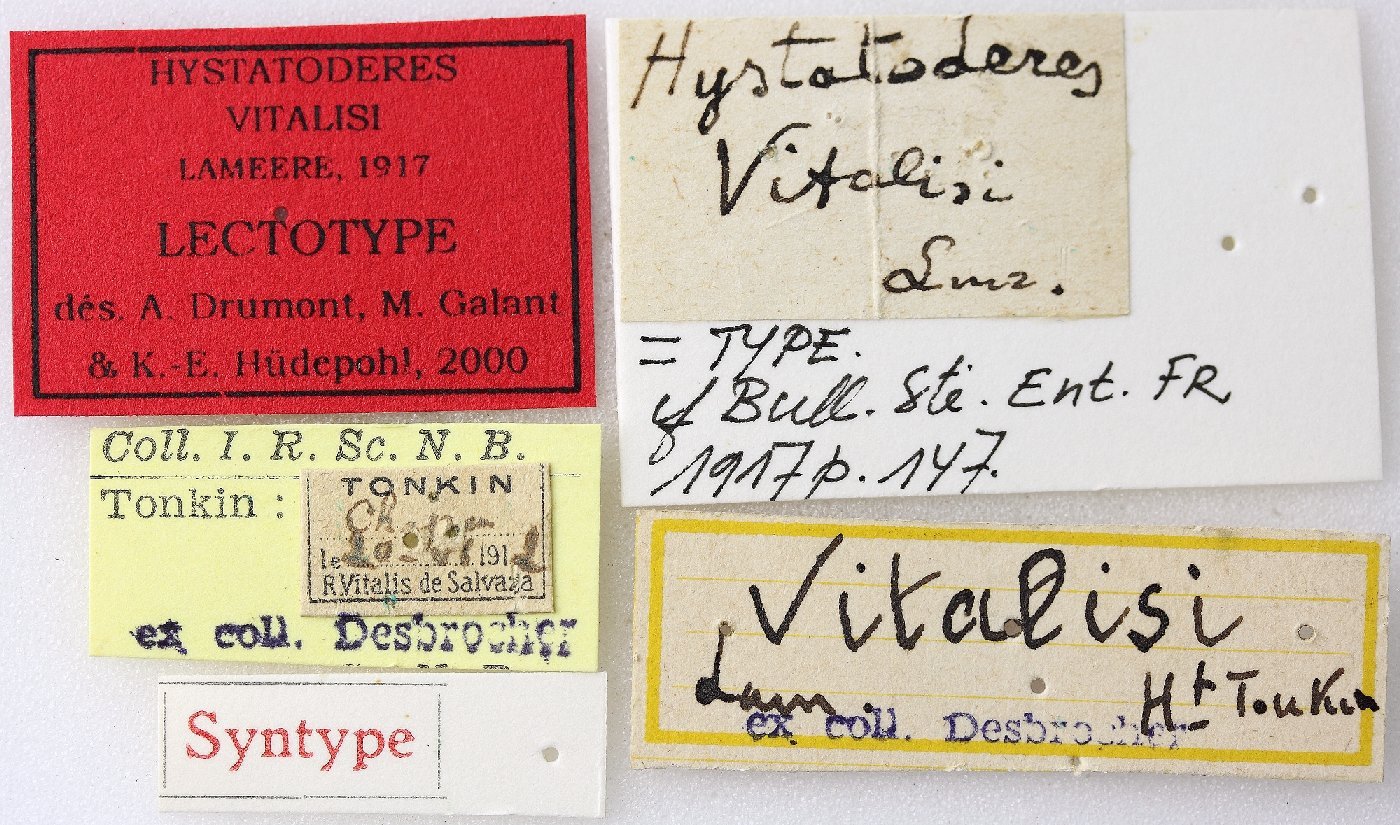 HYSTATODERES
VITALISI
LAMEERE, 1917
LECTOTYPE
dés. A. Drumont, M. Galant
& K.-E. Hüdepohl, 2000
Hystatoderes
Vitalisi
Lmr.
= TYPE.
cf Bull. Sté. Ent. FR
1917 p. 147.
Coll. I. R. Sc. N. B.
Tonkin :
TONKIN
le 191
R Vitalis de Salvaza
ex coll. Desbrocher
Syntype
Vitalisi
Lam. Ht Tonkin
ex coll. Desbrocher